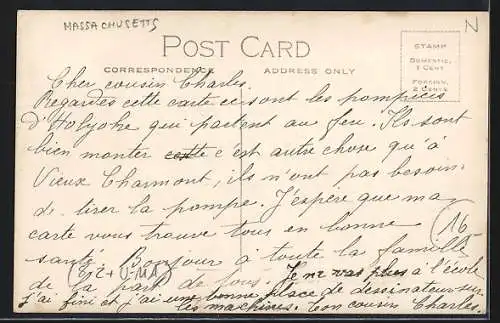 MASSACHUSETTS
N
POST CARD
CORRESPONDENCE
ADDRESS ONLY
STAMP
DOMESTIC,
1 CENT
FOREIGN,
2 CENTS
Cher cousin Charles.
Regardes cette carte ce sont les pompiers
d'Holyoke qui partent au feu. Ils sont
bien monter c'est autre chose qu'à
Vieux Charmont, ils n'ont pas besoin
de tirer la pompe. J'espère que ma
carte vous trouve tous en bonne
santé. Bonjour à toute la famille
de la part de tous. Je ne vas plus à l'école
j'ai fini et j'ai une bonne place de dessinateur sur
les machines. Ton cousin Charles.
16